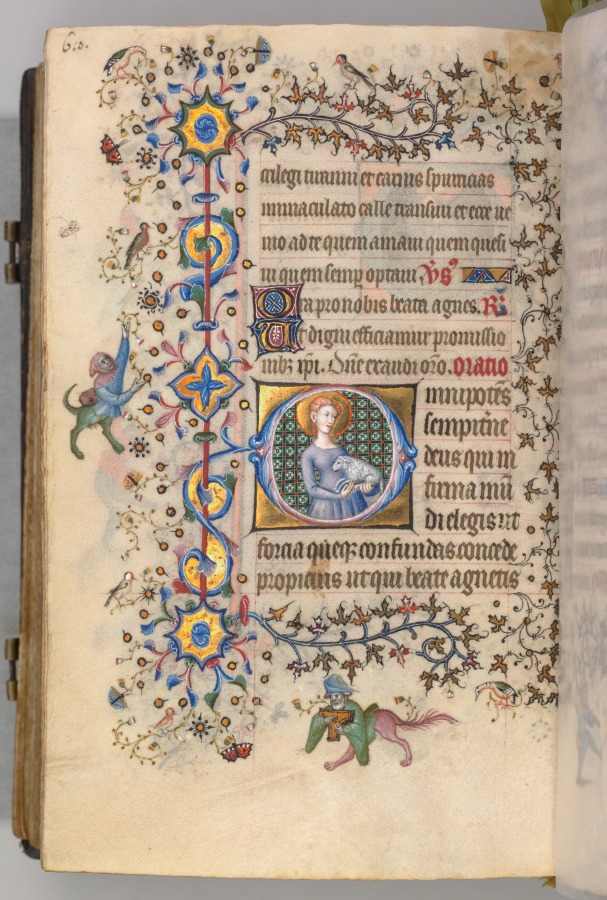 613.
erilegi turinin et carnis spurcicias
inmaculato calle transivi et ecce ve
nio ad te quem amavi quem quesi
vi quem semp optavi V̄s
Ora pro nobis beata agnes. R̄
Ut digni efficiamur promissio
nibꝫ xp̄i. Dn̄e exaudi or̄o. oratio
Omnipotēs
sempit̄ne
deus qui in
firma mū
di elegis ut
forcia queqꝫ confundas concede
propicius ut qui beate agnetis